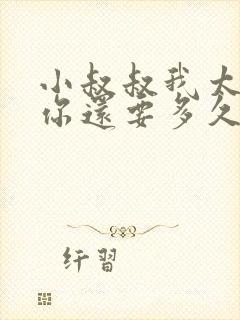 小叔叔我大
你還要多久
纤習